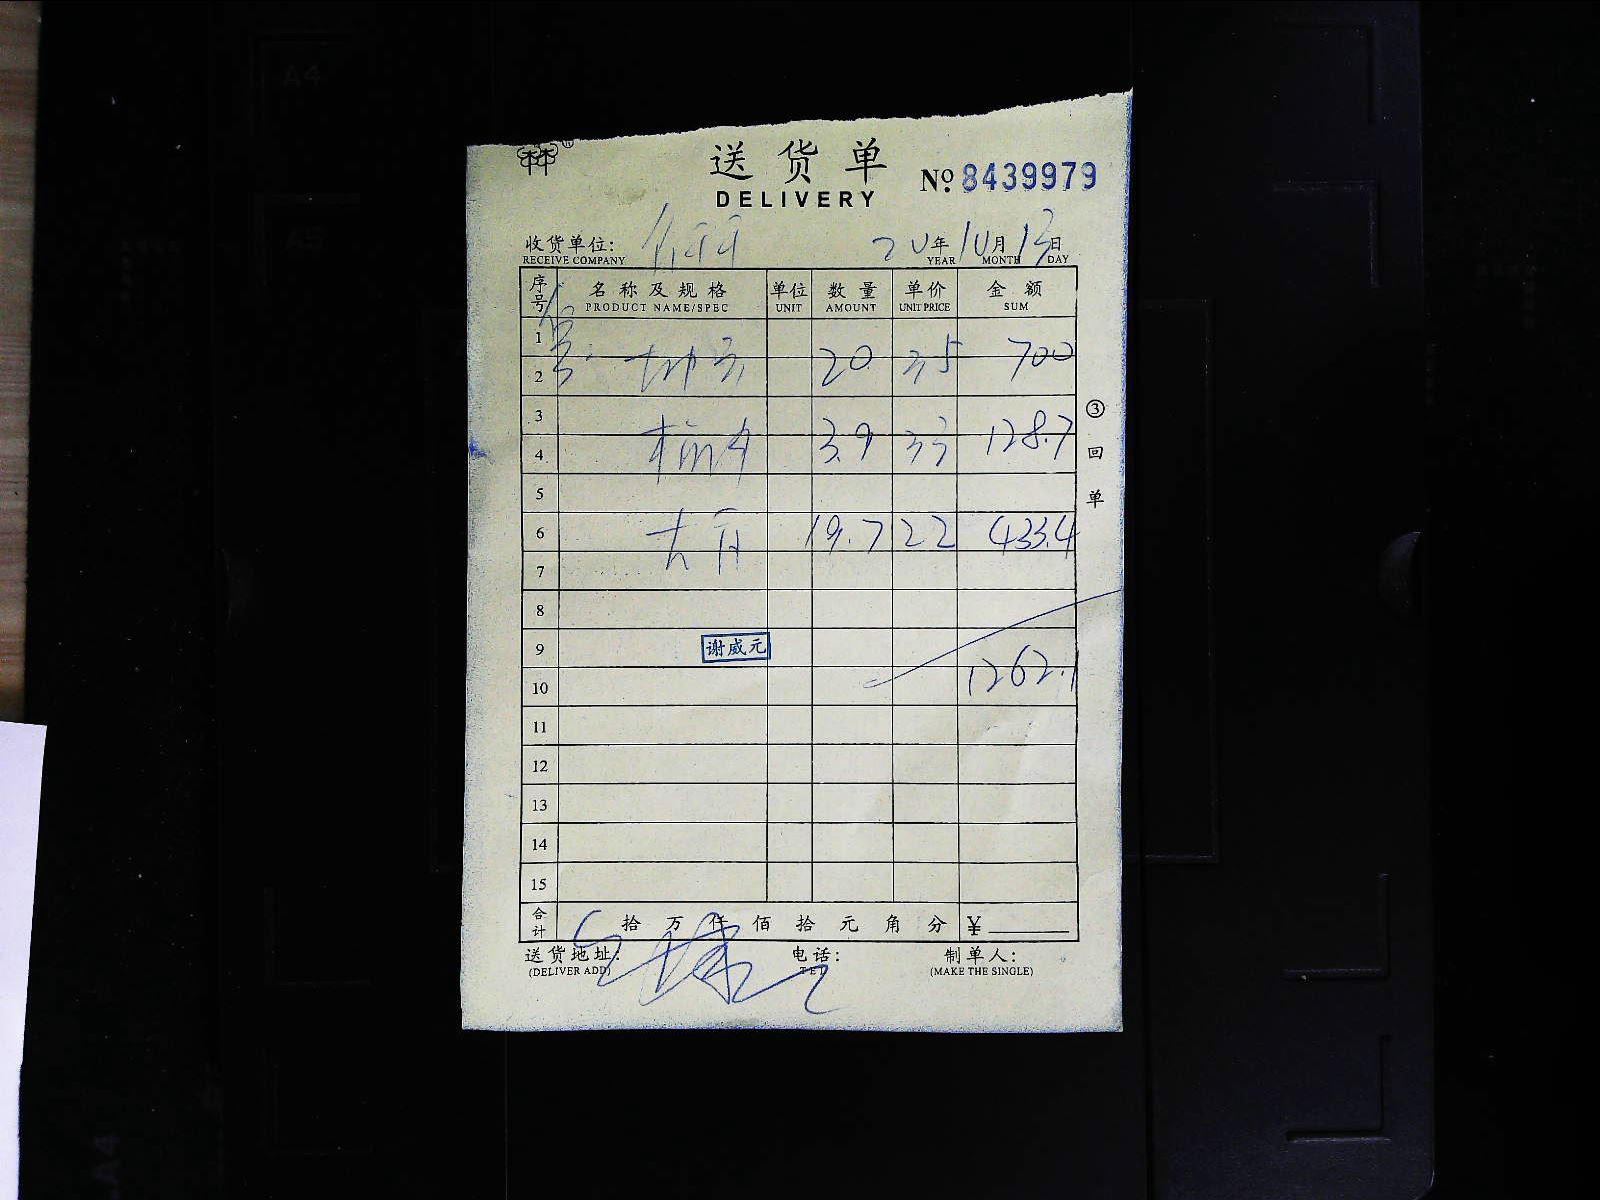 送货单
DELIVERY
No. 8439979
收货单位: 20年10月13日
RECEIVE COMPANY YEAR MONTH DAY
序号 名称及规格 单位 数量 单价 金额
PRODUCT NAME/SPEC UNIT AMOUNT UNIT PRICE SUM
1
2 20 35 700
3
4 3.9 33 128.7
5
6 19.7 22 433.4
7
8
9 谢威元
10 1262.1
11
12
13
14
15
合计 拾 万 仟 佰 拾 元 角 分 ¥
送货地址: 电话: 制单人:
(DELIVER ADD) TEL (MAKE THE SINGLE)
③回单
A4
A5
A4